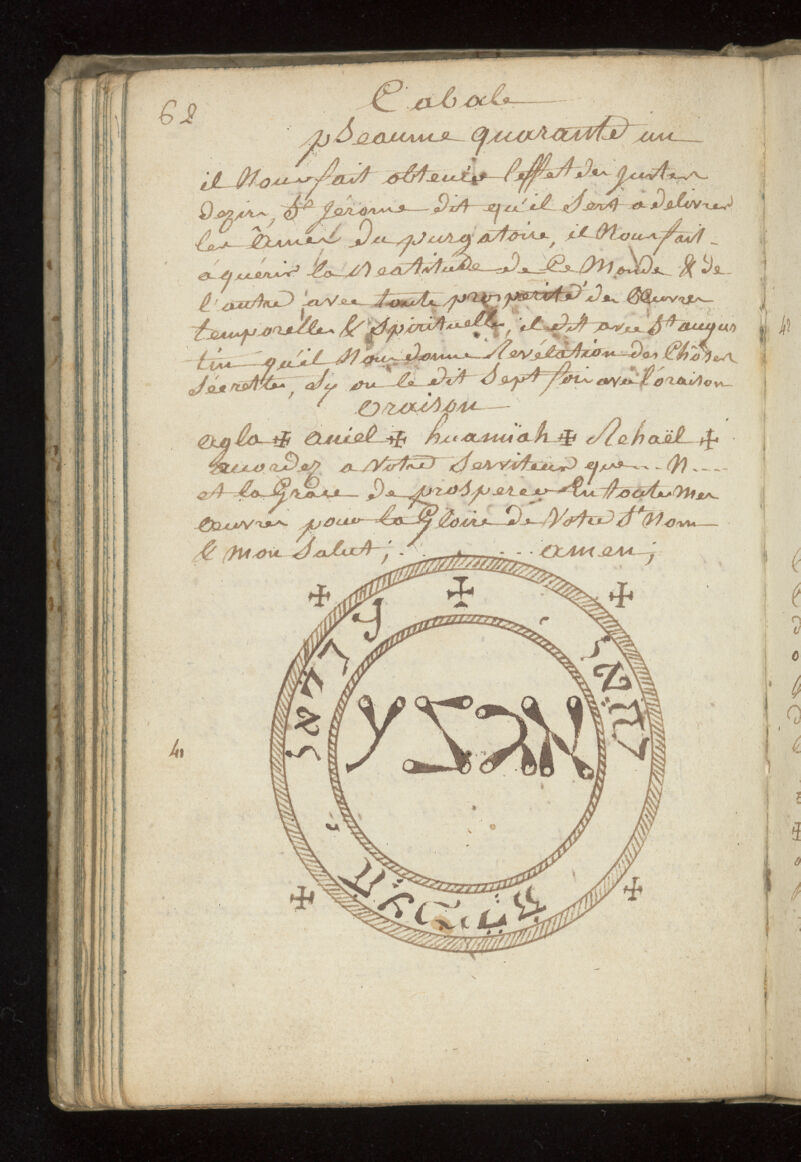 62
Cabale
pseaume quarante un
il Nous fait obtenir l'effet des justes
dezirs, St. Jérome dit qu'il Sert a delivrer
les Âmes du purgatoire, il Nous fait
aquérir la Beatitude de Ce Monde & de
l'autre avec toute prosperité des Œuvres
temporelles & Spirituelle, il dit avec St augus
tin qu'il Nous donne Revélation des Chôses
Sécrettes, Sy on le dit Sept fois avec l'oraison
oraison
agla ✠ aniel ✠ huamïah ✠ Rehaël ✠
accordez a Votre Serviteur que ... N ....
et la Grace de prosperer En toutes Mes
œuvres pour la Gloire de Votre St Nom
& mon Salut; ........... amen;
41